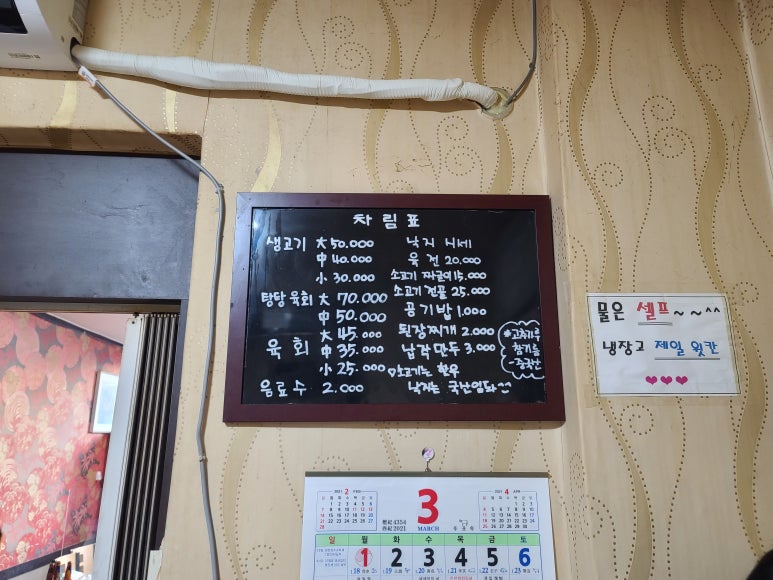 차림표
생고기 大 50.000
中 40.000
小 30.000
탕탕육회 大 70.000
中 50.000
육회 大 45.000
中 35.000
小 25.000
음료수 2.000
낙지 시세
육전 20.000
소고기 짜글이 15.000
소고기 전골 25.000
공기밥 1.000
된장찌개 2.000
납작만두 3.000
♡소고기는 한우
낙지는 국난엽돠
*고춧가루
참기름
-중국산
물은 셀프~~^^
냉장고 제일 윗칸
♥♥♥
2021 2 FEB
3
MARCH
檀紀 4354
西紀 2021
2021 4 APR
일 월 화 수 목 금 토
1 2 3 4 5 6